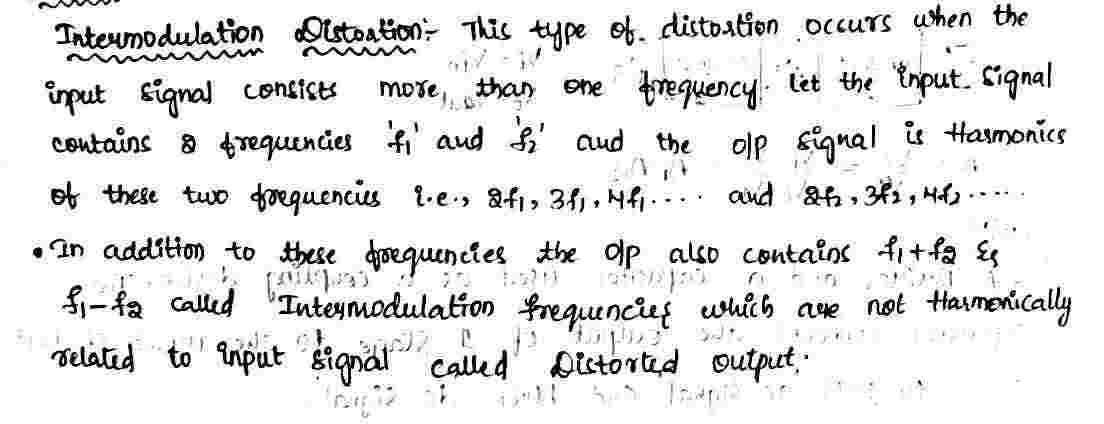 Intermodulation Distortion:- This type of distortion occurs when the
input signal consists more, than one frequency. let the input signal
contains 2 frequencies 'f1' and 'f2' and the o/p signal is Harmonics
of these two frequencies i.e., 2f1, 3f1, 4f1.... and 2f2, 3f2, 4f2.....
• In addition to these frequencies the o/p also contains f1+f2 &
f1-f2 called "Intermodulation frequencies which are not Harmonically
related to input signal called Distorted output.